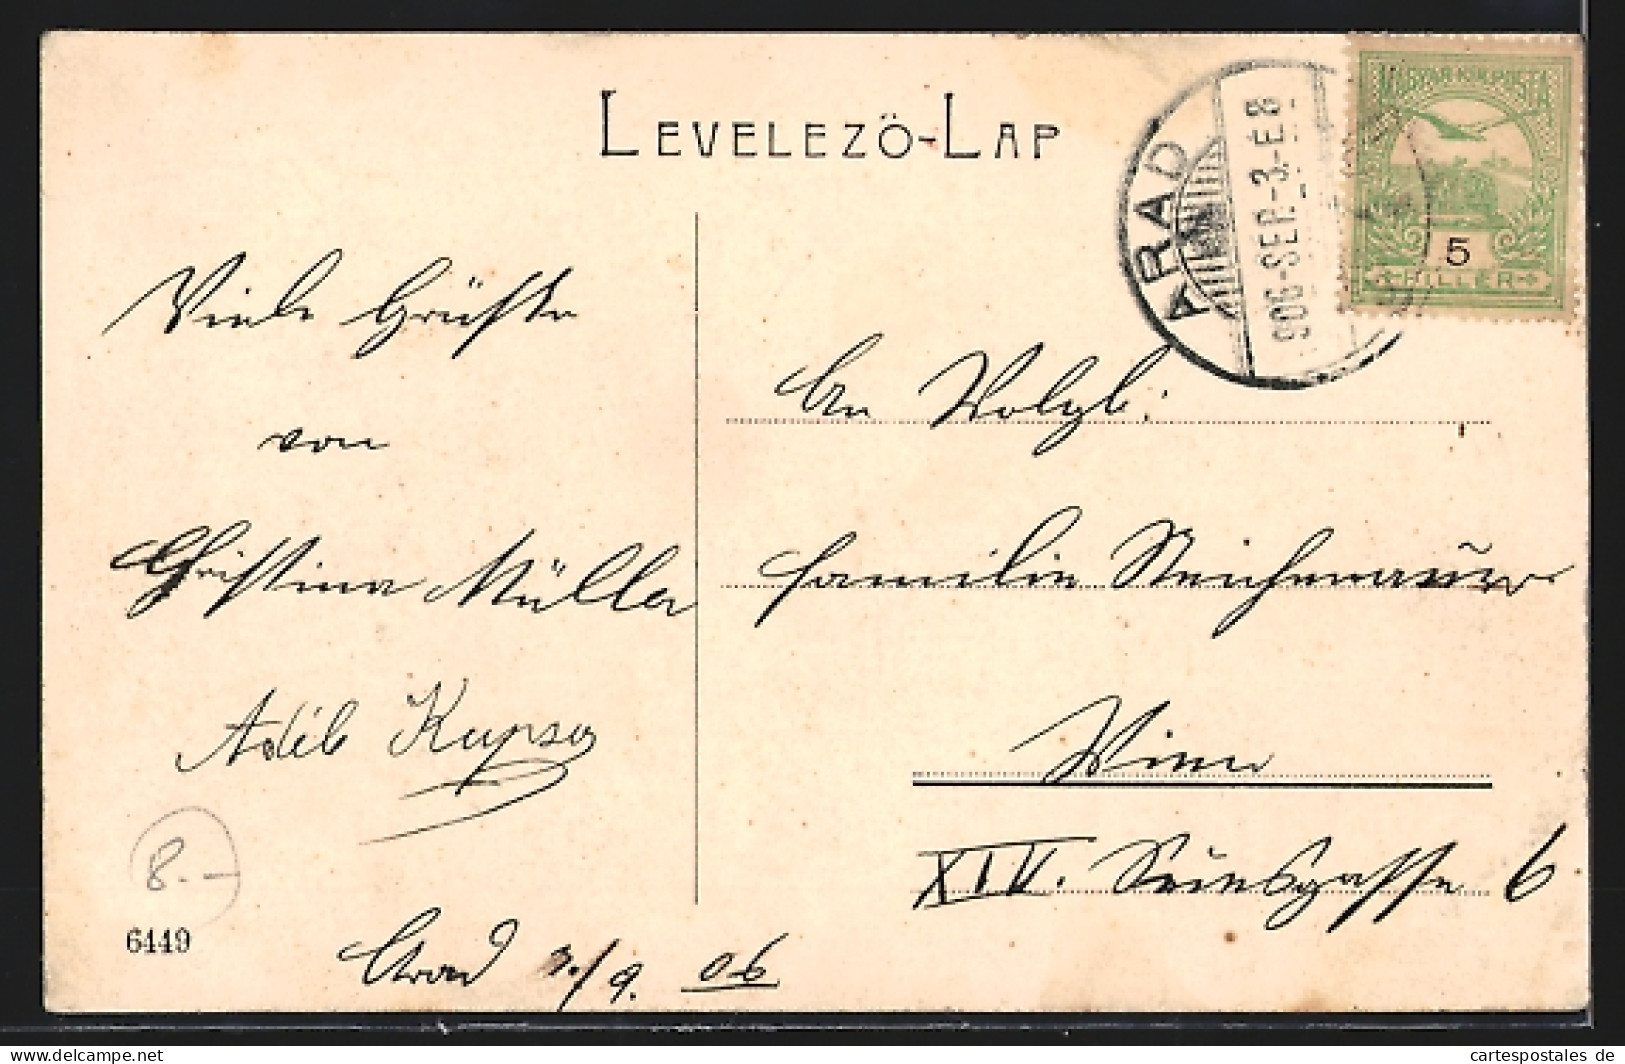 LEVELEZÖ-LAP
MAGYAR KIR. POSTA
5
FILLÉR
ARAD
906-SEP.-3.-É 8
Viele Grüße
von
Christine Müller
Adél Kupsa
8.-
6449
Arad 3./9. 06
An Wolgb:
Familie
Wien
XIV. 6
cartespostales de